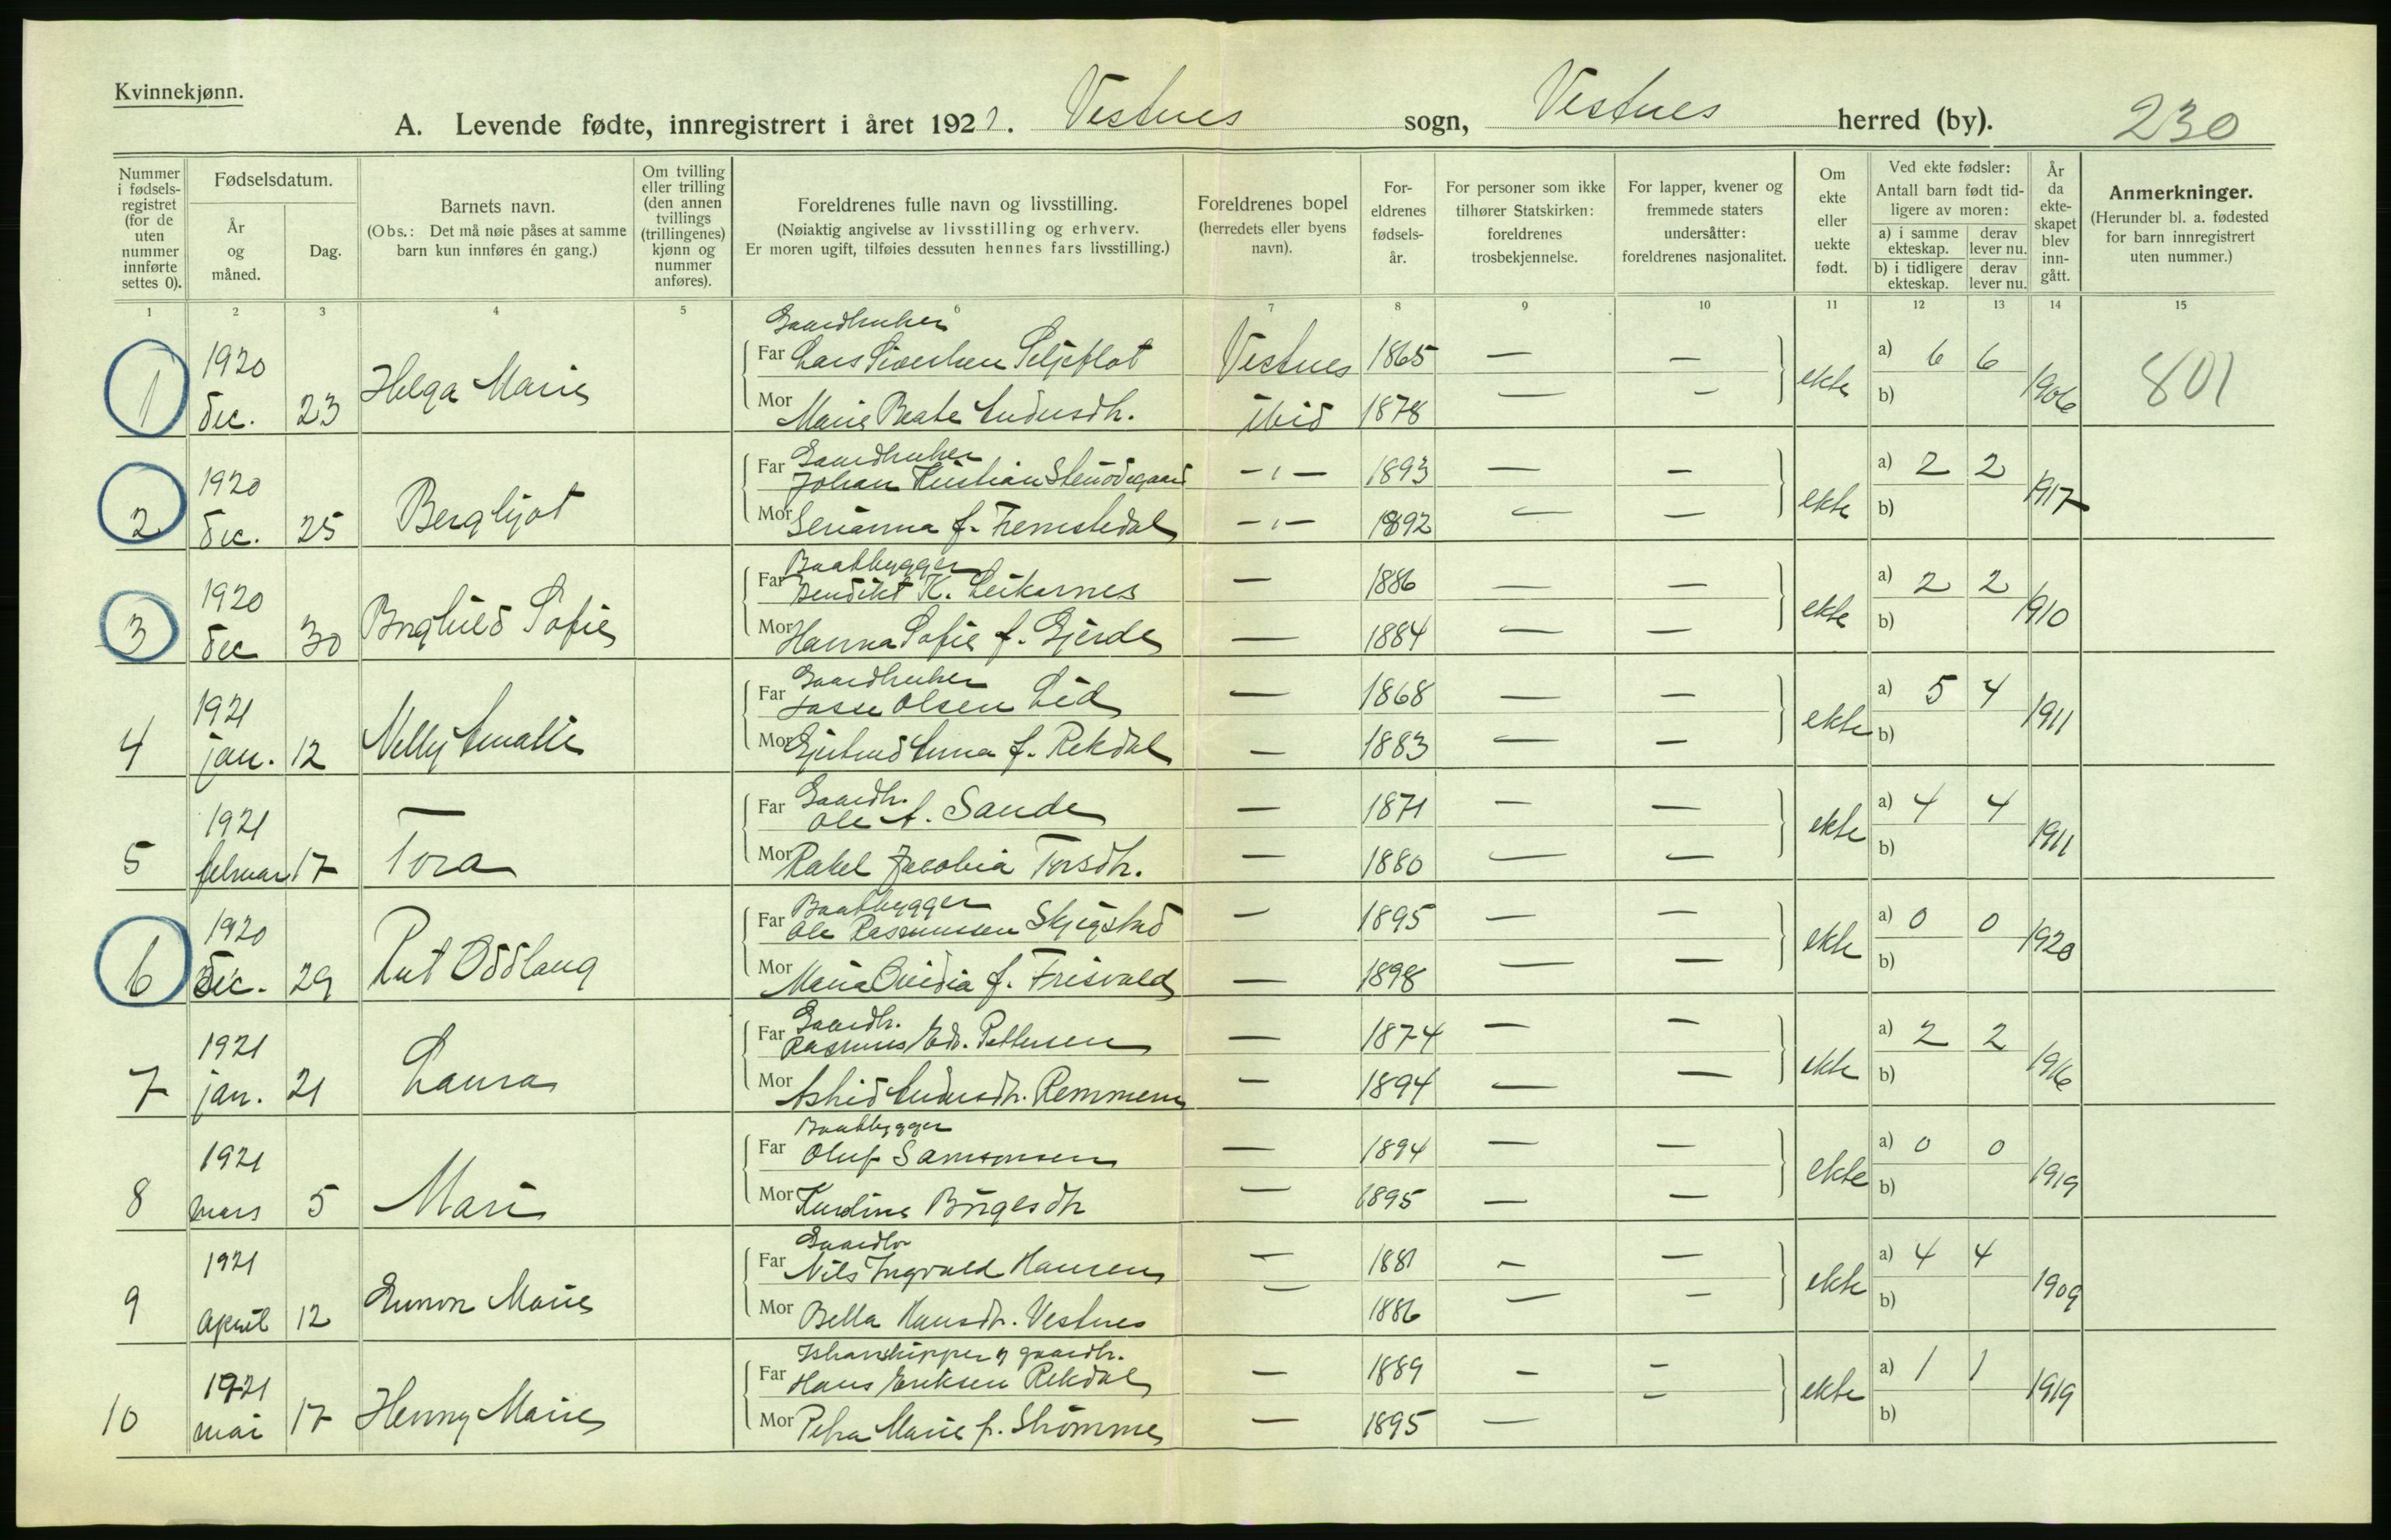 Kvinnekjønn.
A. Levende fødte, innregistrert i året 1921. Vestnes sogn, Vestnes herred (by). 230
Nummer i fødsels- registret (for de uten nummer innførte settes 0).
Fødselsdatum.
År og måned.
Dag.
Barnets navn.
(Obs.: Det må nøie påses at samme barn kun innføres én gang.)
Om tvilling eller trilling (den annen tvillings (trillingenes) kjønn og nummer anføres).
Foreldrenes fulle navn og livsstilling.
(Nøiaktig angivelse av livsstilling og erhverv.
Er moren ugift, tilføies dessuten hennes fars livsstilling.)
Foreldrenes bopel (herredets eller byens navn).
For- eldrenes fødsels- år.
For personer som ikke tilhører Statskirken: foreldrenes trosbekjennelse.
For lapper, kvener og fremmede staters undersåtter: foreldrenes nasjonalitet.
Om ekte eller uekte født.
Ved ekte fødsler:
Antall barn født tid- ligere av moren:
a) i samme ekteskap.
derav lever nu.
b) i tidligere ekteskap.
derav lever nu.
År da ekte- skapet blev inn- gått.
Anmerkninger.
(Herunder bl. a. fødested for barn innregistrert uten nummer.)
1 2 3 4 5 6 7 8 9 10 11 12 13 14 15
Gaardbruker
1 1920 dec. 23 Helga Marie
Far Lars Sivertsen Seljeflot Vestnes 1865 — — ekte a) 6 6 1906 801
Mor Marie Beate Andersdtr. ibid 1878 — — b)
Gaardbruker
2 1920 dec. 25 Bergljot
Far Johan Kristian Stenødegaard -"- 1893 — — ekte a) 2 2 1917
Mor Serianna f. Tremstedal -"- 1892 — — b)
Baatbygger
3 1920 dec 30 Borghild Sofie
Far Bendikt K. Leikarnes — 1886 — — ekte a) 2 2 1910
Mor Hanna Sofie f. Gjerde — 1884 — — b)
Gaardbruker
4 1921 jan. 12 Nelly Amalie
Far Lasse Olsen Lid — 1868 — — ekte a) 5 4 1911
Mor Gjertrud Anna f. Rekdal — 1883 — — b)
Gaardbr.
5 1921 februar 17 Tora
Far Ole A. Sande — 1871 — — ekte a) 4 4 1911
Mor Rakel Jacobia Torsdtr. — 1880 — — b)
Baatbygger
6 1920 dec. 29 Rut Oddlaug
Far Ole Rasmussen Skjegstad — 1895 — — ekte a) 0 0 1920
Mor Maria Ovidia f. Frisvald — 1898 — — b)
Gaardbr.
7 1921 jan. 21 Laura
Far Rasmus Edv. Pettersen — 1874 — — ekte a) 2 2 1916
Mor Astrid Andersdtr. Remmem — 1894 — — b)
Baatbygger
8 1921 mars 5 Mari
Far Oluf Samsonsen — 1894 — — ekte a) 0 0 1919
Mor Knudine Børgesdtr — 1895 — — b)
Gaardbr
9 1921 April 12 Gunvor Marie
Far Nils Ingvald Hansen — 1881 — — ekte a) 4 4 1909
Mor Bella Hansdtr. Vestnes — 1886 — — b)
gaardbr.
10 1921 mai 17 Henny Marie
Far Hans Eriksen Rekdal — 1889 — — ekte a) 1 1 1919
Mor Petra Marie f. Strømme — 1895 — b)